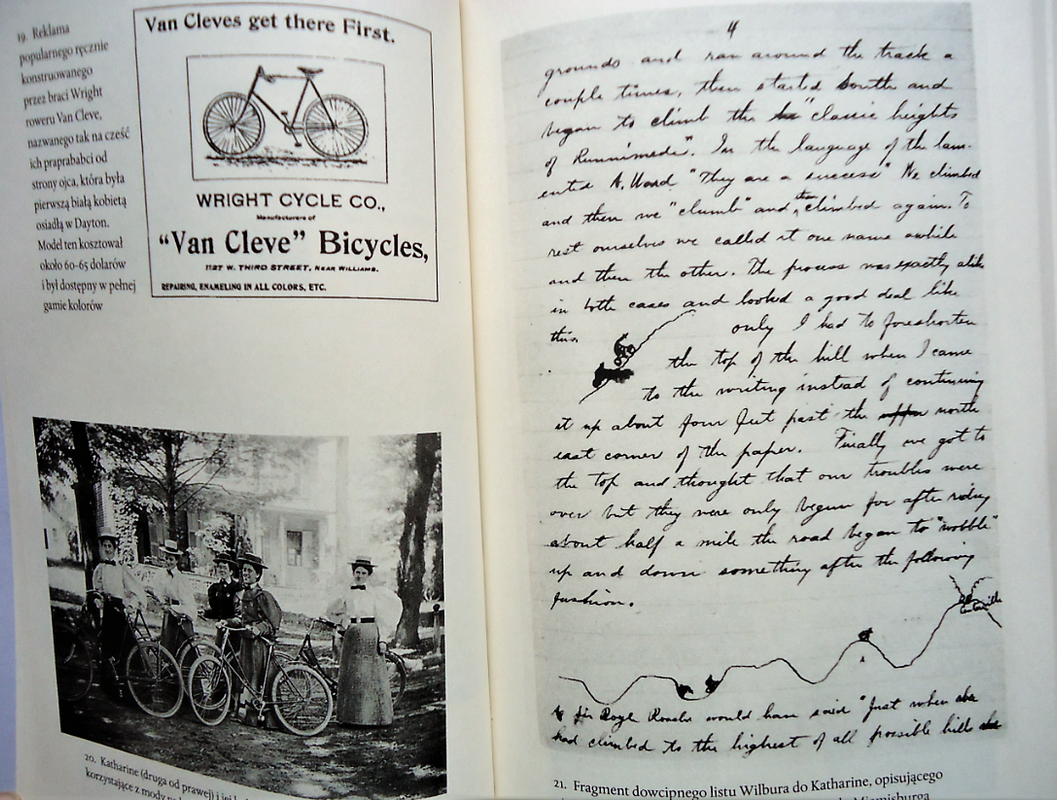 19. Reklama
popularnego ręcznie
konstruowanego
przez braci Wright
roweru Van Cleve,
nazwanego tak na cześć
ich praprababci od
strony ojca, która była
pierwszą białą kobietą
osiadłą w Dayton.
Model ten kosztował
około 60-65 dolarów
i był dostępny w pełnej
gamie kolorów
Van Cleves get there First.
WRIGHT CYCLE CO.,
Manufacturers of
"Van Cleve" Bicycles,
1127 W. THIRD STREET, NEAR WILLIAMS.
REPAIRING, ENAMELING IN ALL COLORS, ETC.
20. Katharine (druga od prawej) i jej
korzystające z mody
4
grounds and ran around the track a
couple times, then started South and
began to climb the "classic heights
of Runnimede". In the language of the lam-
ented A. Ward "They are a success" We climbed
and then we "clumb" and then climbed again. To
rest ourselves we called it one name awhile
and then the other. The process was exactly alike
in both cases and looked a good deal like
this.
only I had to foreshorten
the top of the hill when I came
to the writing instead of continuing
it up about four feet past the north
east corner of the paper. Finally we got to
the top and thought that our troubles were
over but they were only begun for after riding
about half a mile the road began to "wobble"
up and down something after the following
fashion.
Centerville
would have said "just when
had climbed to the highest of all possible hills
21. Fragment dowcipnego listu Wilbura do Katharine, opisującego